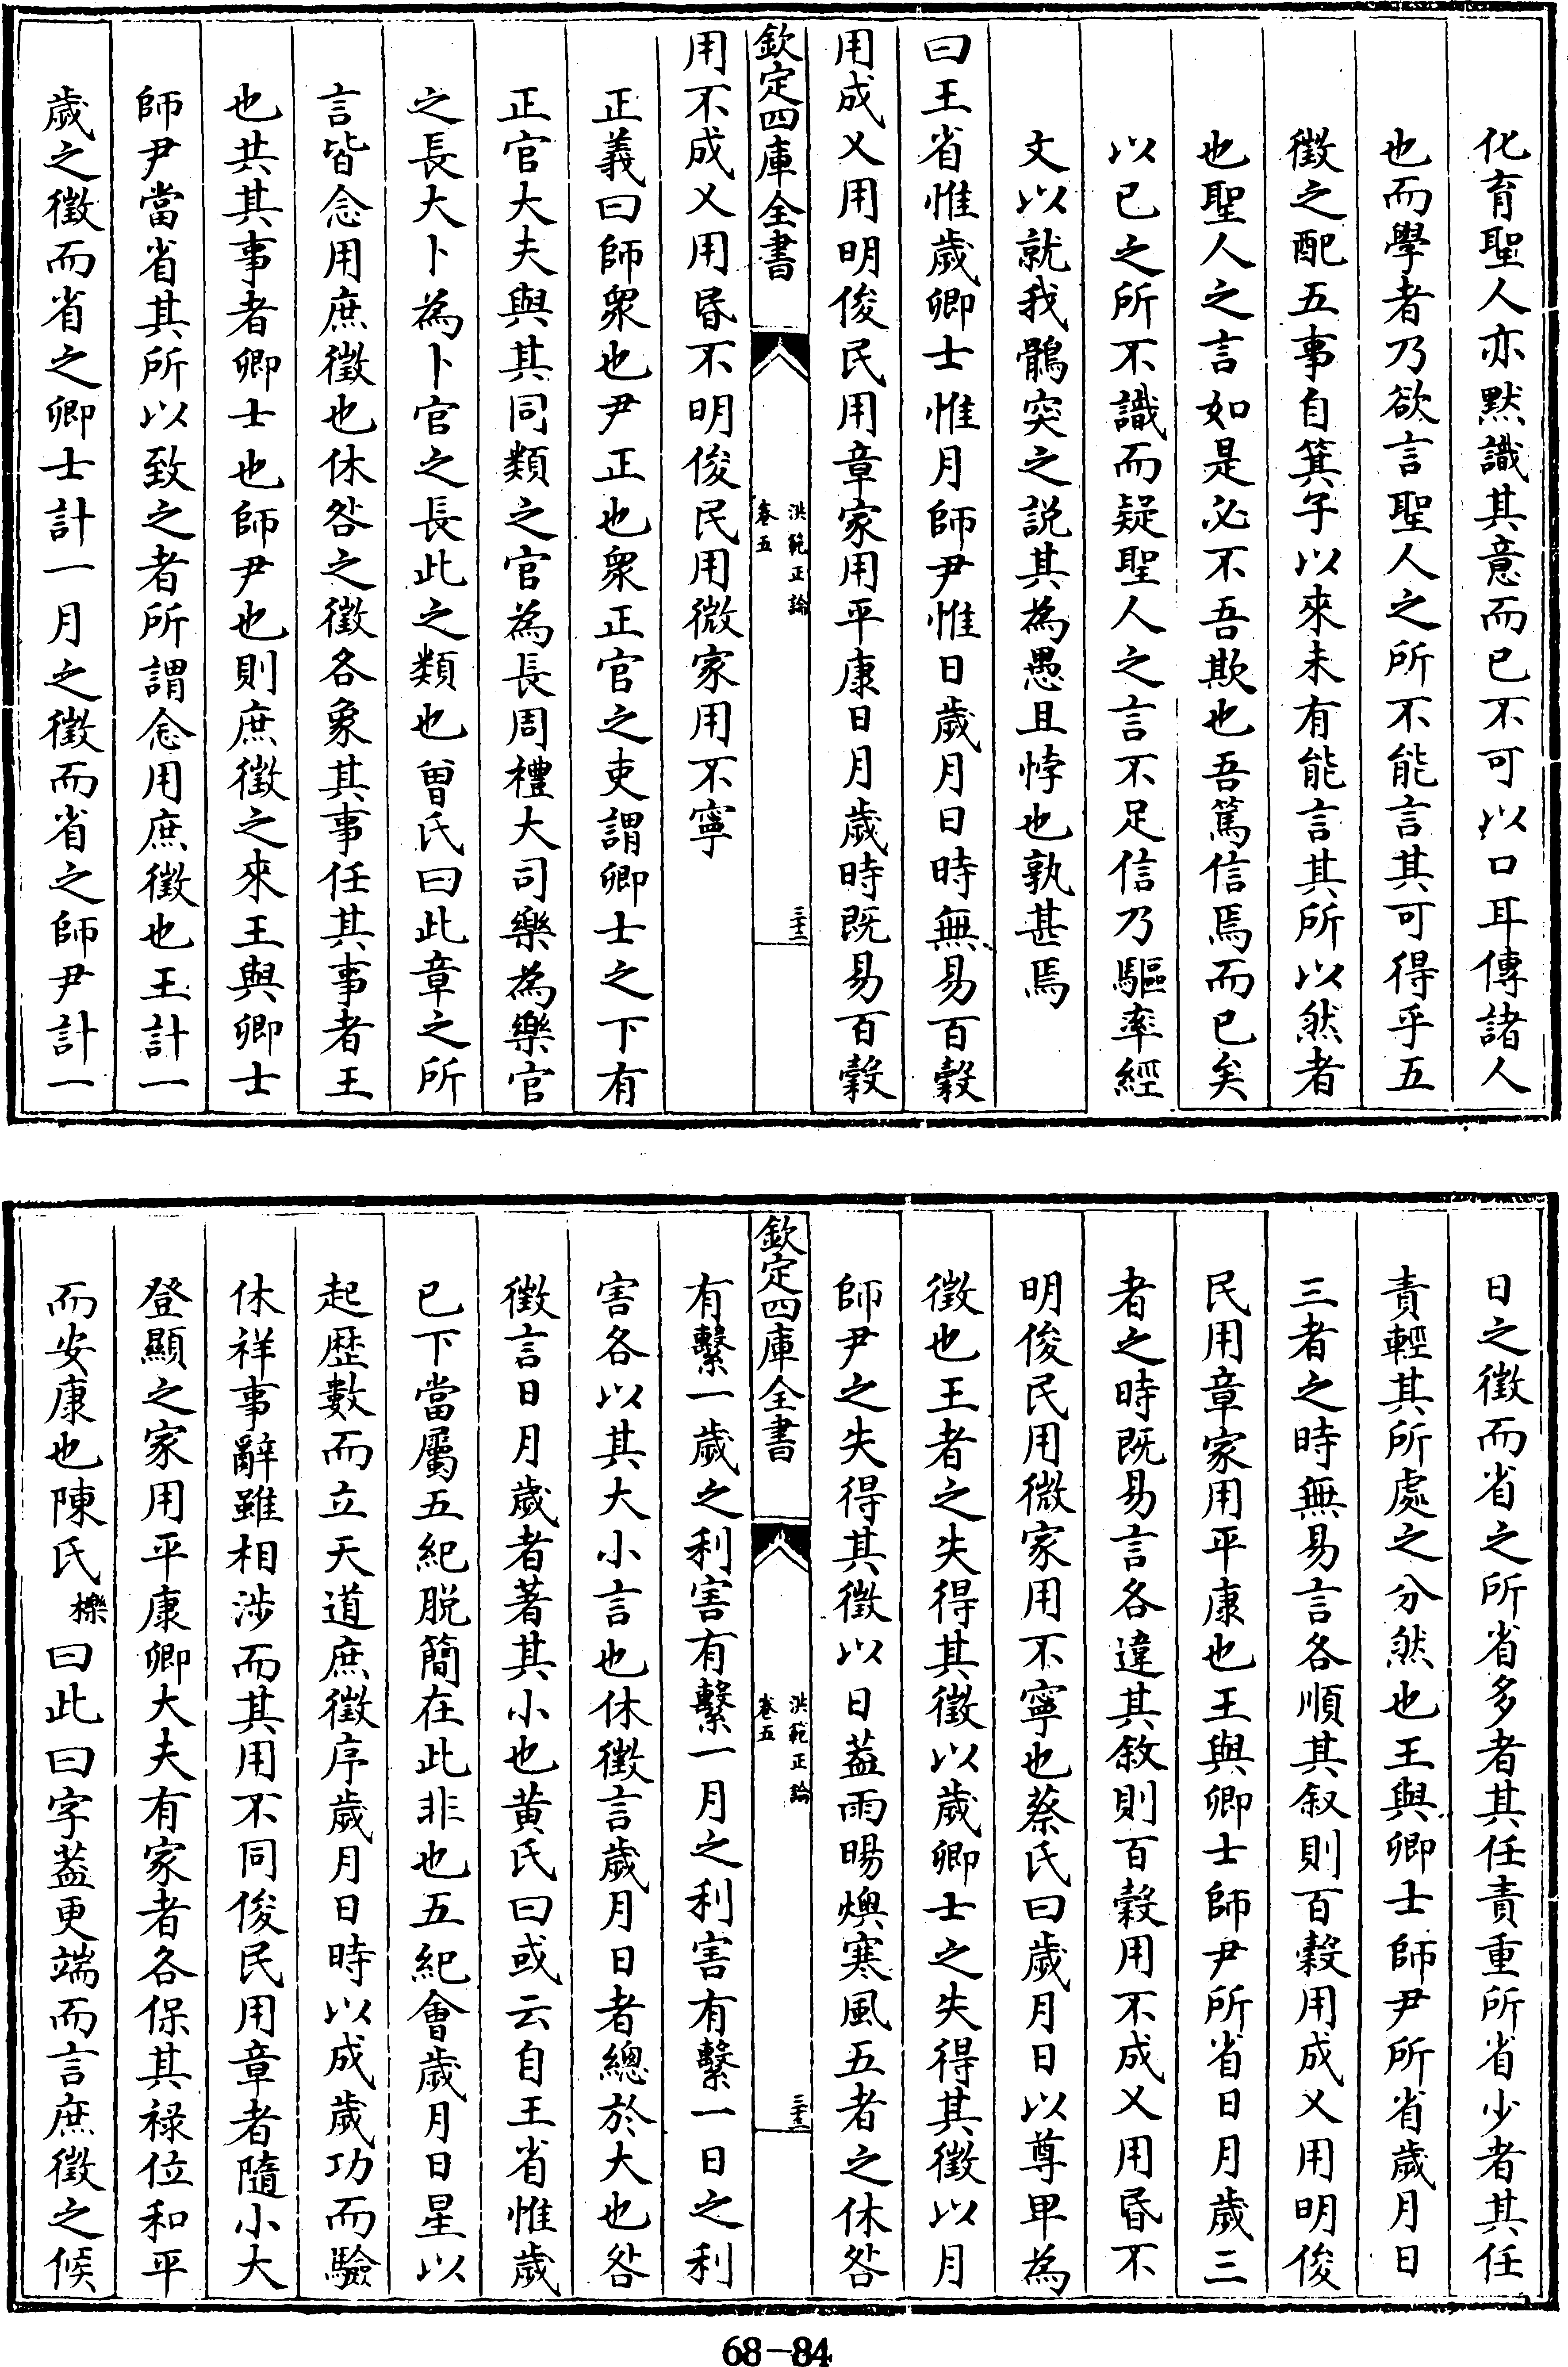 化育聖人亦默識其意而已不可以口耳傳諸人
也而學者乃欲言聖人之所不能言其可得乎五
徵之配五事自箕子以來未有能言其所以然者
也聖人之言如是必不吾欺也吾篤信焉而已矣
以已之所不識而疑聖人之言不足信乃驅率經
文以就我鶻突之說其為愚且悖也孰甚焉
曰王省惟歲卿士惟月師尹惟日歲月日時無易百穀
用成乂用明俊民用章家用平康日月歲時既易百穀
欽定四庫全書
洪範正論
卷五
三十二
用不成乂用昏不明俊民用微家用不寧
正義曰師衆也尹正也衆正官之吏謂卿士之下有
正官大夫與其同類之官為長周禮大司樂為樂官
之長大卜為卜官之長此之類也曾氏曰此章之所
言皆念用庶徵也休咎之徵各象其事任其事者王
也共其事者卿士也師尹也則庶徵之來王與卿士
師尹當省其所以致之者所謂念用庶徵也王計一
歲之徵而省之卿士計一月之徵而省之師尹計一
日之徵而省之所省多者其任責重所省少者其任
責輕其所處之分然也王與卿士師尹所省歲月日
三者之時無易言各順其叙則百穀用成乂用明俊
民用章家用平康也王與卿士師尹所省日月歲三
者之時既易言各違其敘則百穀用不成乂用昏不
明俊民用微家用不寧也蔡氏曰歲月日以尊卑為
徵也王者之失得其徵以歲卿士之失得其徵以月
師尹之失得其徵以日蓋雨暘燠寒風五者之休咎
欽定四庫全書
洪範正論
卷五
三十三
有繫一歲之利害有繫一月之利害有繫一日之利
害各以其大小言也休徵言歲月日者總於大也咎
徵言日月歲者著其小也黄氏曰或云自王省惟歲
已下當屬五紀脱簡在此非也五紀會歲月日星以
起歷數而立天道庶徵序歲月日時以成歲功而驗
休祥事辭雖相涉而其用不同俊民用章者隨小大
登顯之家用平康卿大夫有家者各保其祿位和平
而安康也陳氏櫟曰此曰字蓋更端而言庶徵之候
68-84